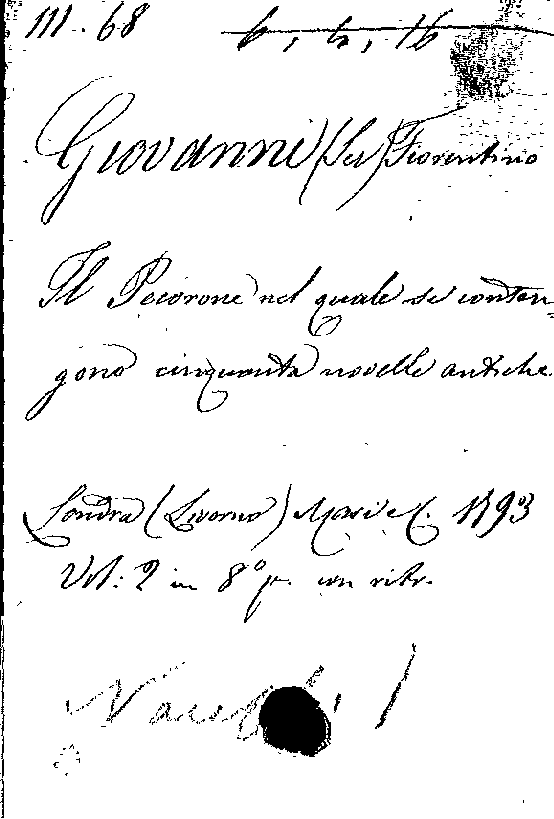 III. 68 6, 4, 16
Giovanni (Ser) Fiorentino
Il Pecorone nel quale si conten-
gono cinquanta novelle antiche
Londra (Livorno) Masi e C. 1793
Vol: 2 in 8º p. con ritr.